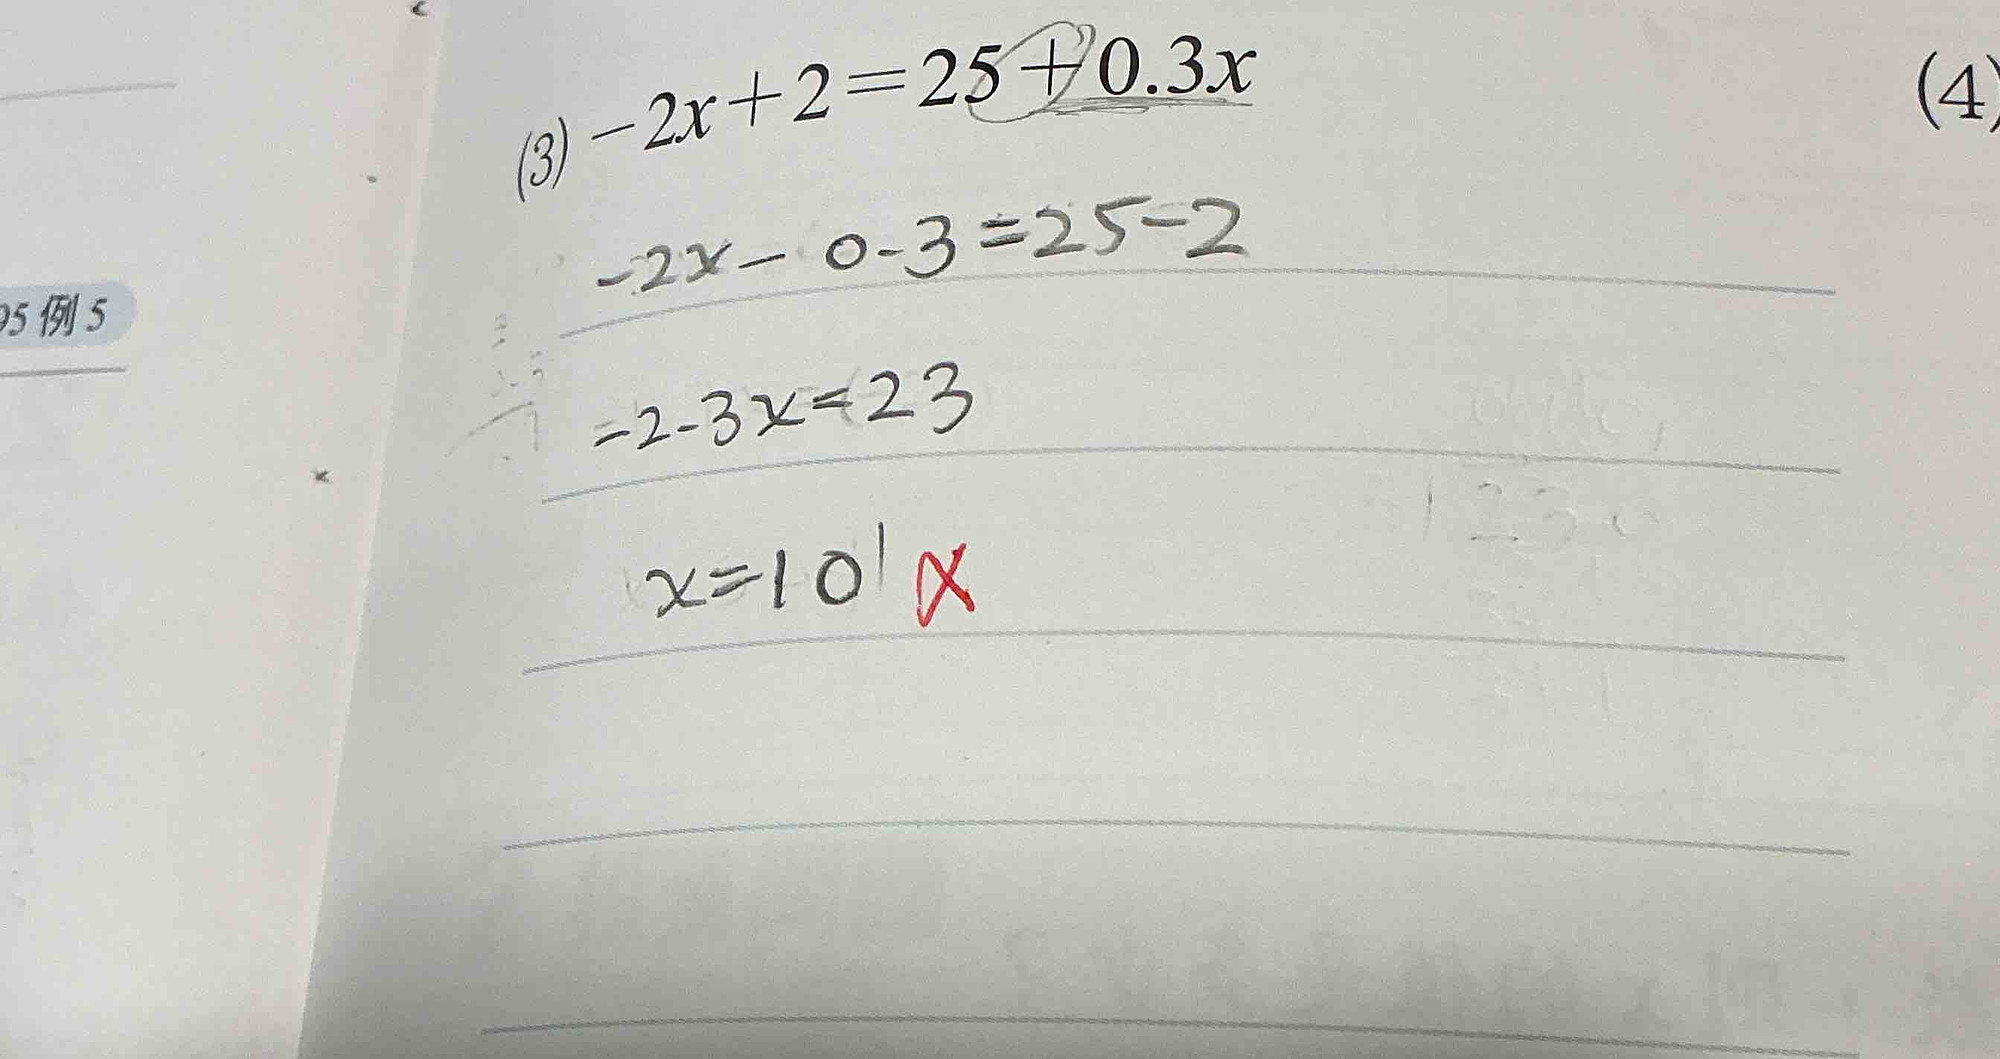 (3) −2x+2=25+0.3x
(4)
-2x-0-3=25-2
95 例 5
-2-3x=23
x=10